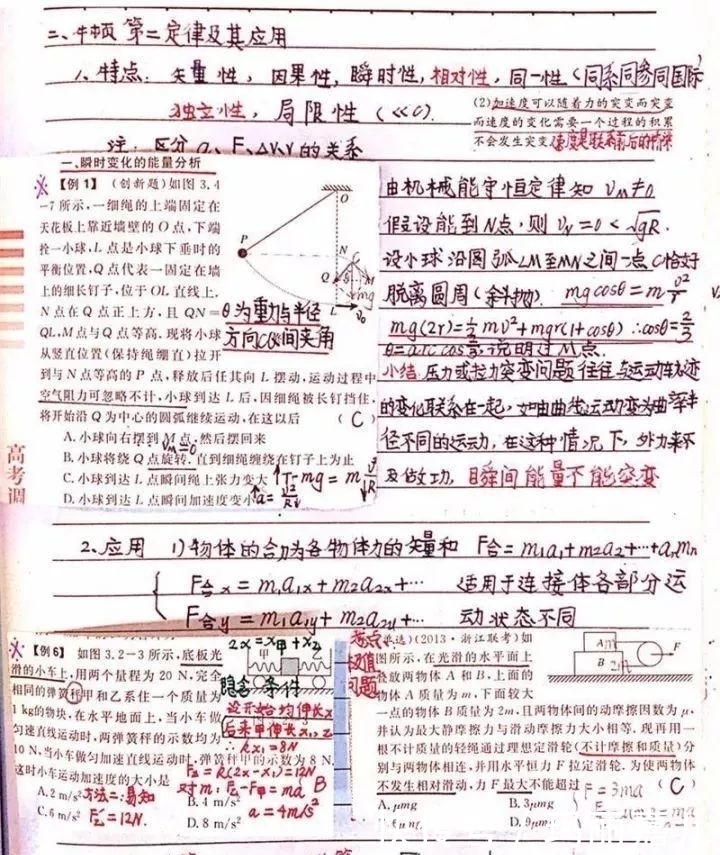 二、牛顿第二定律及其应用
1、特点：矢量性，因果性，瞬时性，相对性，同一性（同系同参同国际）
独立性，局限性（<<c）.
(2)加速度可以随着力的突变而突变
而速度的变化需要一个过程的积累
不会发生突变
注：区分a、F、ΔV、V的关系
一、瞬时变化的能量分析
【例1】（创新题）如图3.4
-7所示，一细绳的上端固定在
天花板上靠近墙壁的O点，下端
拴一小球，L点是小球下垂时的
平衡位置，Q点代表一固定在墙
上的细长钉子，位于OL直线上，
N点在Q点正上方，且QN=
QL，M点与Q点等高.现将小球
从竖直位置（保持绳绷直）拉开
到与N点等高的P点，释放后任其向L摆动，运动过程中
空气阻力可忽略不计，小球到达L后，因细绳被长钉挡住，
将开始沿Q为中心的圆弧继续运动，在这以后（C）
A.小球向右摆到M点，然后摆回来
B.小球将绕Q点旋转，直到细绳缠绕在钉子上为止
C.小球到达L点瞬间绳上张力变大
D.小球到达L点瞬间加速度变小
O
P
N
Q
C
M
mg
L
v₀
θ为重力与半径
方向CQ间夹角
T-mg=m v²/R
由机械能守恒定律知 V_M≠0
假设能到N点，则V_N=0<√gR.
设小球沿圆弧LM至MN之间一点C恰好
脱离圆周（斜抛） mgcosθ=m v²/r
mg(2r)=½mv²+mgr(1+cosθ) ∴cosθ=2/3
θ=arccos2/3，说明过M点.
小结：压力或拉力突变问题往往与运动轨迹
的变化联系在一起，如由曲线运动变为曲率半
径不同的运动，在这种情况下，外力来不
及做功，瞬间能量不能突变
高考调
2、应用 1)物体的合力为各物体力的矢量和 F合=m₁a₁+m₂a₂+…+aₙmₙ
F合x=m₁a₁x+m₂a₂x+… 适用于连接体各部分运
F合y=m₁a₁y+m₂a₂y+… 动状态不同
【例6】 如图3.2-3所示，底板光
滑的小车上，用两个量程为20 N，完全
相同的弹簧秤甲和乙系住一个质量为
1 kg的物块，在水平地面上，当小车做
匀速直线运动时，两弹簧秤的示数均为
10 N，当小车做匀加速直线运动时，弹簧秤甲的示数为8 N，
这时小车运动加速度的大小是
A.2 m/s² B.4 m/s²
C.6 m/s² D.8 m/s²
2x=x甲+x乙
甲
乙
隐含条件
设开始均伸长x
后来甲伸长x₁,
∴kx₁=8N
F乙=k(2x-x₁)=12N
对m：F乙-F甲=ma B
a=4m/s²
方法二：易知
F乙=12N.
考点
极值
问题
选）(2013·浙江联考)如
图所示，在光滑的水平面上
叠放两物体A和B，上面的
物体A质量为m，下面较大
一点的物体B质量为2m，且两物体间的动摩擦因数为μ，
并认为最大静摩擦力与滑动摩擦力大小相等.现再用一
根不计质量的轻绳通过理想定滑轮（不计摩擦和质量）分
别与两物体相连，并用水平恒力F拉定滑轮.为使两物体
不发生相对滑动，力F最大不能超过（C）
A.μmg B.3μmg
D.9μmg
A
B
F
F=3ma